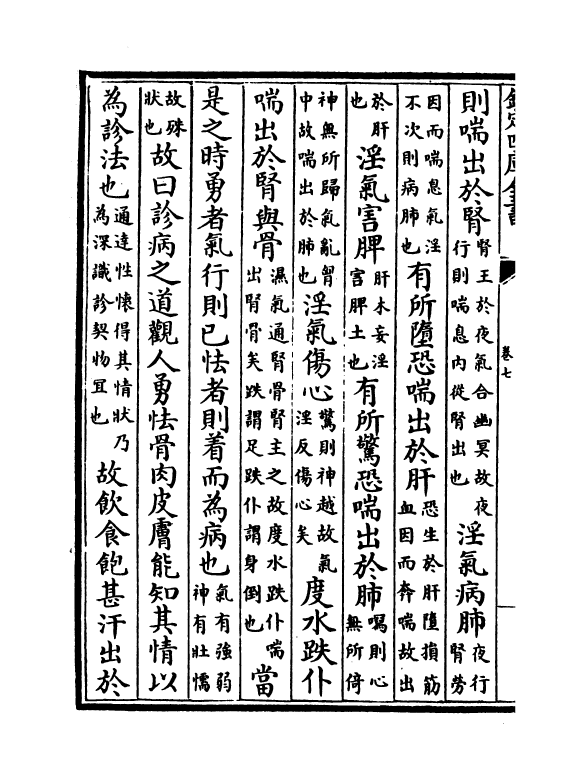 卷七
則喘出於腎腎王於夜氣合幽冥故夜行則喘息内從腎出也淫氣病肺夜行腎勞
因而喘息氣淫不次則病肺也有所墮恐喘出於肝恐生於肝墮損筋血因而奔喘故出
於肝也淫氣害脾肝木妄淫害脾土也有所驚恐喘出於肺則心無所倚
神無所歸氣亂胷中故喘出於肺也淫氣傷心驚則神越故氣淫反傷心矣度水跌仆
喘出於腎與骨濕氣通腎骨腎主之故度水跌仆喘出腎骨矣跌謂足跌仆謂身倒也當
是之時勇者氣行則已怯者則着而為病也氣有強弱神有壯懦
故殊狀也故曰診病之道觀人勇怯骨肉皮膚能知其情以
為診法也通達性懷得其情狀乃為深識診契物冝也故飲食飽甚汗出於